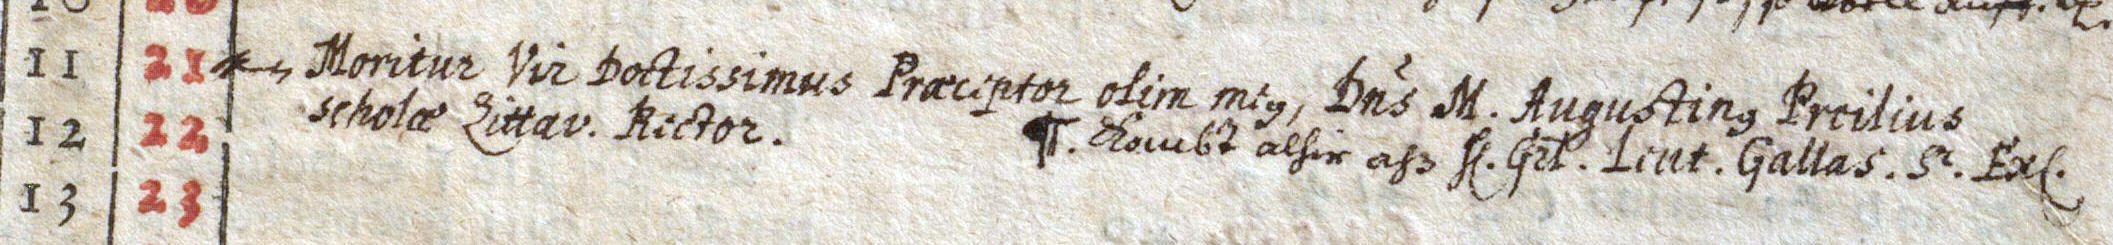 11 21 Moritur Vir Doctissimus Præceptor olim meꝰ, Dn̄s M. Augustinꝰ Preilius
12 22 scholæ Zittav. Rector. ¶. Kombt alhir ahn H. Grl. Leut. Gallas. Sr. Exl.
13 23